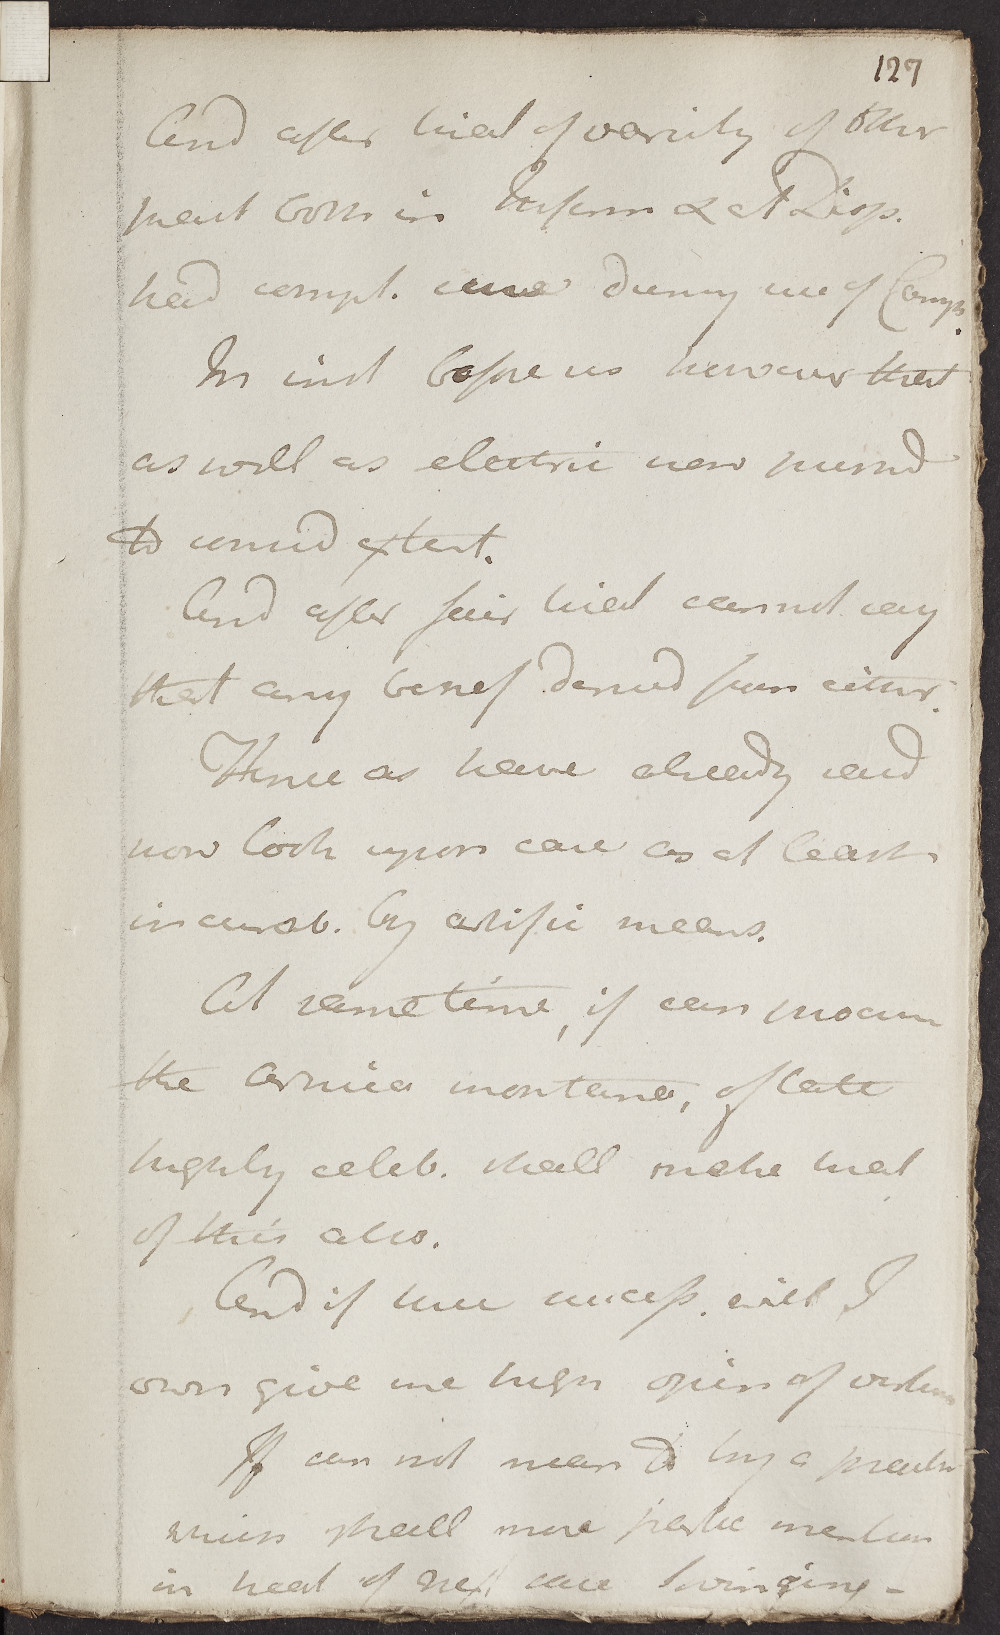 127
And after trial of variety of other
ment both in Infirm & at Disp.
had compl. cure during use of Camp.
In inst before us however that
as well as electric now pursued
to consid extent.
And after fair trial cannot say
that any benef derived from either.
Hence as have already said
now look upon case as at least
incurab. by artific means.
At same time, if can procure
the arnica montana, of late
highly celeb. shall make trial
of this also.
And if here success. will I
own give me high opin of virtues
If can not mean to try a
which shall more partic mention
in treat of next case Swinging -